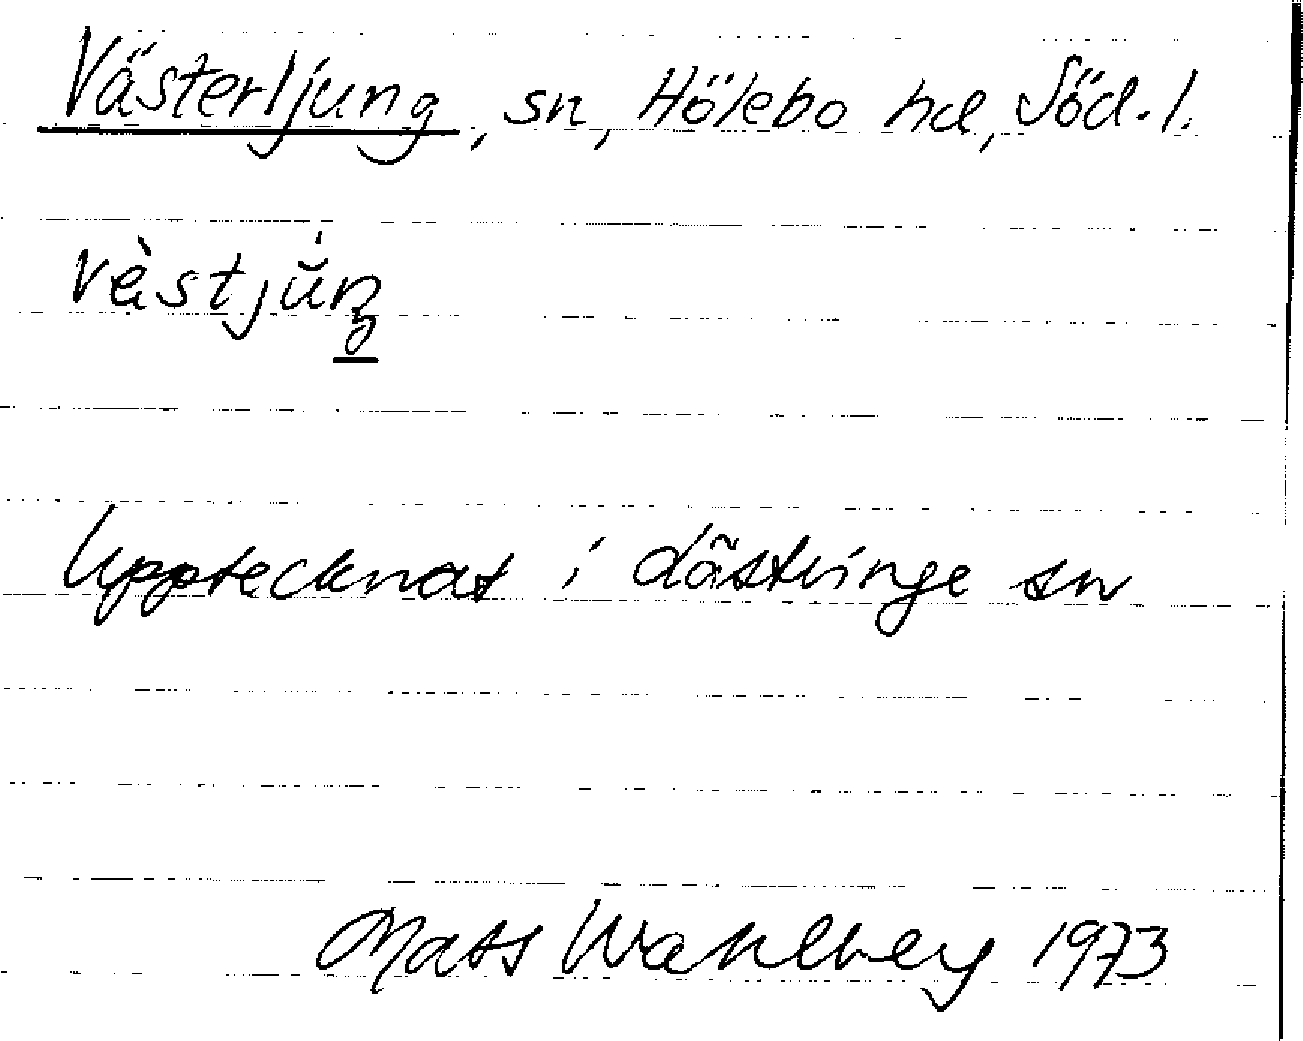 Västerljung, sn, Hölebo hd, Söd. l.
Upptecknat i Lästringe sn
Mats Wahlberg 1973